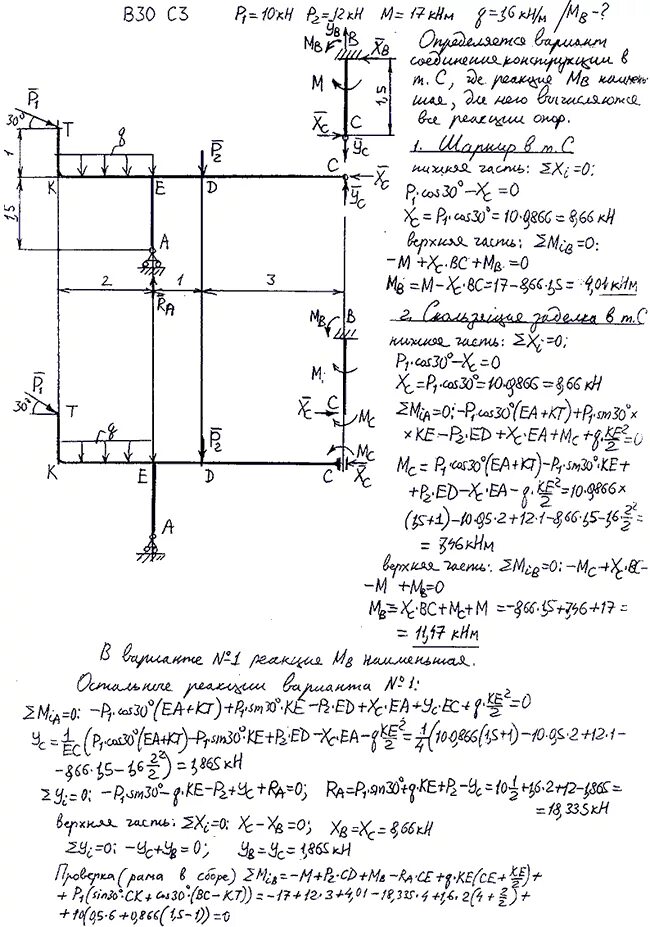 B30 C3 P₁=10кН P₂=12кН M=17кНм q=1,6кН/м /M_B-?
Определяется вариант
соединения конструкции в
т. С, где реакция M_B наимень-
шая, для него вычисляются
все реакции опор.
1. Шарнир в т. С
нижняя часть: ΣXi=0;
P₁·cos30°-Xc=0
Xc=P₁·cos30°=10·0,866=8,66 кН
верхняя часть: ΣM_iB=0:
-M+Xc·BC+M_B=0
M_B=M-Xc·BC=17-8,66·1,5=4,01 кНм
2. Скользящая заделка в т. С
нижняя часть: ΣXi=0;
P₁·cos30°-Xc=0
Xc=P₁·cos30°=10·0,866=8,66 кН
ΣM_iA=0; -P₁·cos30°(EA+KT)+P₁·sin30°×
×KE-P₂·ED+Xc·EA+Mc+q·KE²/2=0
Mc=P₁·cos30°(EA+KT)-P₁·sin30°·KE+
+P₂·ED-Xc·EA-q·KE²/2=10·0,866×
(1,5+1)-10·0,5·2+12·1-8,66·1,5-1,6·2²/2=
=7,46 кНм
верхняя часть: ΣM_iB=0; -Mc+Xc·BC-
-M+M_B=0
M_B=-Xc·BC+Mc+M=-8,66·1,5+7,46+17=
=11,47 кНм
В варианте №1 реакция M_B наименьшая.
Остальные реакции варианта №1:
ΣM_iA=0: -P₁·cos30°(EA+KT)+P₁·sin30°·KE-P₂·ED+Xc·EA+Yc·EC+q·KE²/2=0
Yc=1/EC(P₁·cos30°(EA+KT)-P₁·sin30°KE+P₂·ED-Xc·EA-q·KE²/2=1/4(10·0,866(1,5+1)-10·0,5·2+12·1-
-8,66·1,5-1,6·2²/2)=1,865 кН
ΣYi=0; -P₁·sin30°-q·KE-P₂+Yc+R_A=0; R_A=P₁·sin30°+q·KE+P₂-Yc=10·1/2+1,6·2+12-1,865=
=18,335кН
верхняя часть: ΣXi=0; Xc-X_B=0; X_B=Xc=8,66кН
ΣYi=0; -Yc+Y_B=0; Y_B=Yc=1,865кН
Проверка (рама в сборе) ΣM_iB=-M+P₂·CD+M_B-R_A·CE+q·KE(CE+KE/2)+
+P₁(sin30°·CK+cos30°(BC-KT))=-17+12·3+4,01-18,335·4+1,6·2(4+2/2)+
+10(0,5·6+0,866(1,5-1))=0
Y_B
B
M_B
X_B
M
1,5
Xc
C
Yc
P₁
30°
T
q
P₂
1
K
E
D
C
Xc
Yc
1,5
A
2
R_A
1
3
M_B
B
M
P₁
30°
T
Xc
C
Mc
q
P₂
Mc
K
E
D
C
Xc
A